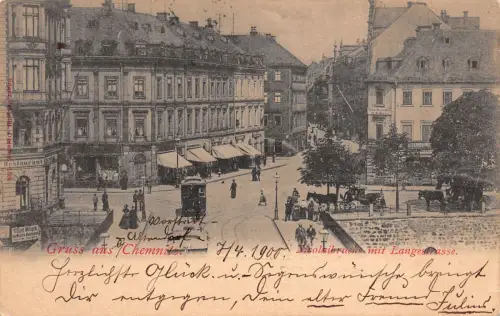 Restaurant
Gruss aus Chemnitz.
Nicolaibrücke mit Langestrasse.
7/4. 1900.
Herzlichste Glück u. Segenswünsche bringt
Dir entgegen, Dein alter Freund
Julius.